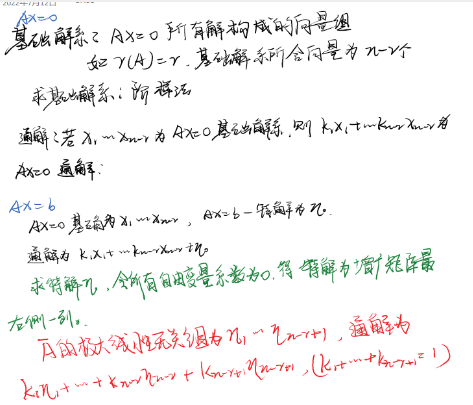 2022年7月12日
AX=0
基础解系: AX=0 所有解构成的向量组
如 r(A)=r. 基础解系所含向量为 n-r个
求基础解系: 阶梯法
通解: 若 x₁…xₙ₋ᵣ 为 AX=0 基础解系, 则 k₁x₁+…kₙ₋ᵣxₙ₋ᵣ 为
AX=0 通解:
AX=b
AX=0 基础解为 x₁…xₙ₋ᵣ, AX=b 一特解为 η.
通解为 k₁x₁+…kₙ₋ᵣxₙ₋ᵣ+η.
求特解η, 令所有自由变量系数为0. 得 特解为增广矩阵最
右侧一列。
的极大线性无关组为 η₁…ηₙ₋ᵣ₊₁, 通解为
k₁η₁+…+kₙ₋ᵣηₙ₋ᵣ+kₙ₋ᵣ₊₁ηₙ₋ᵣ₊₁, (k₁+…+kₙ₋ᵣ₊₁=1)